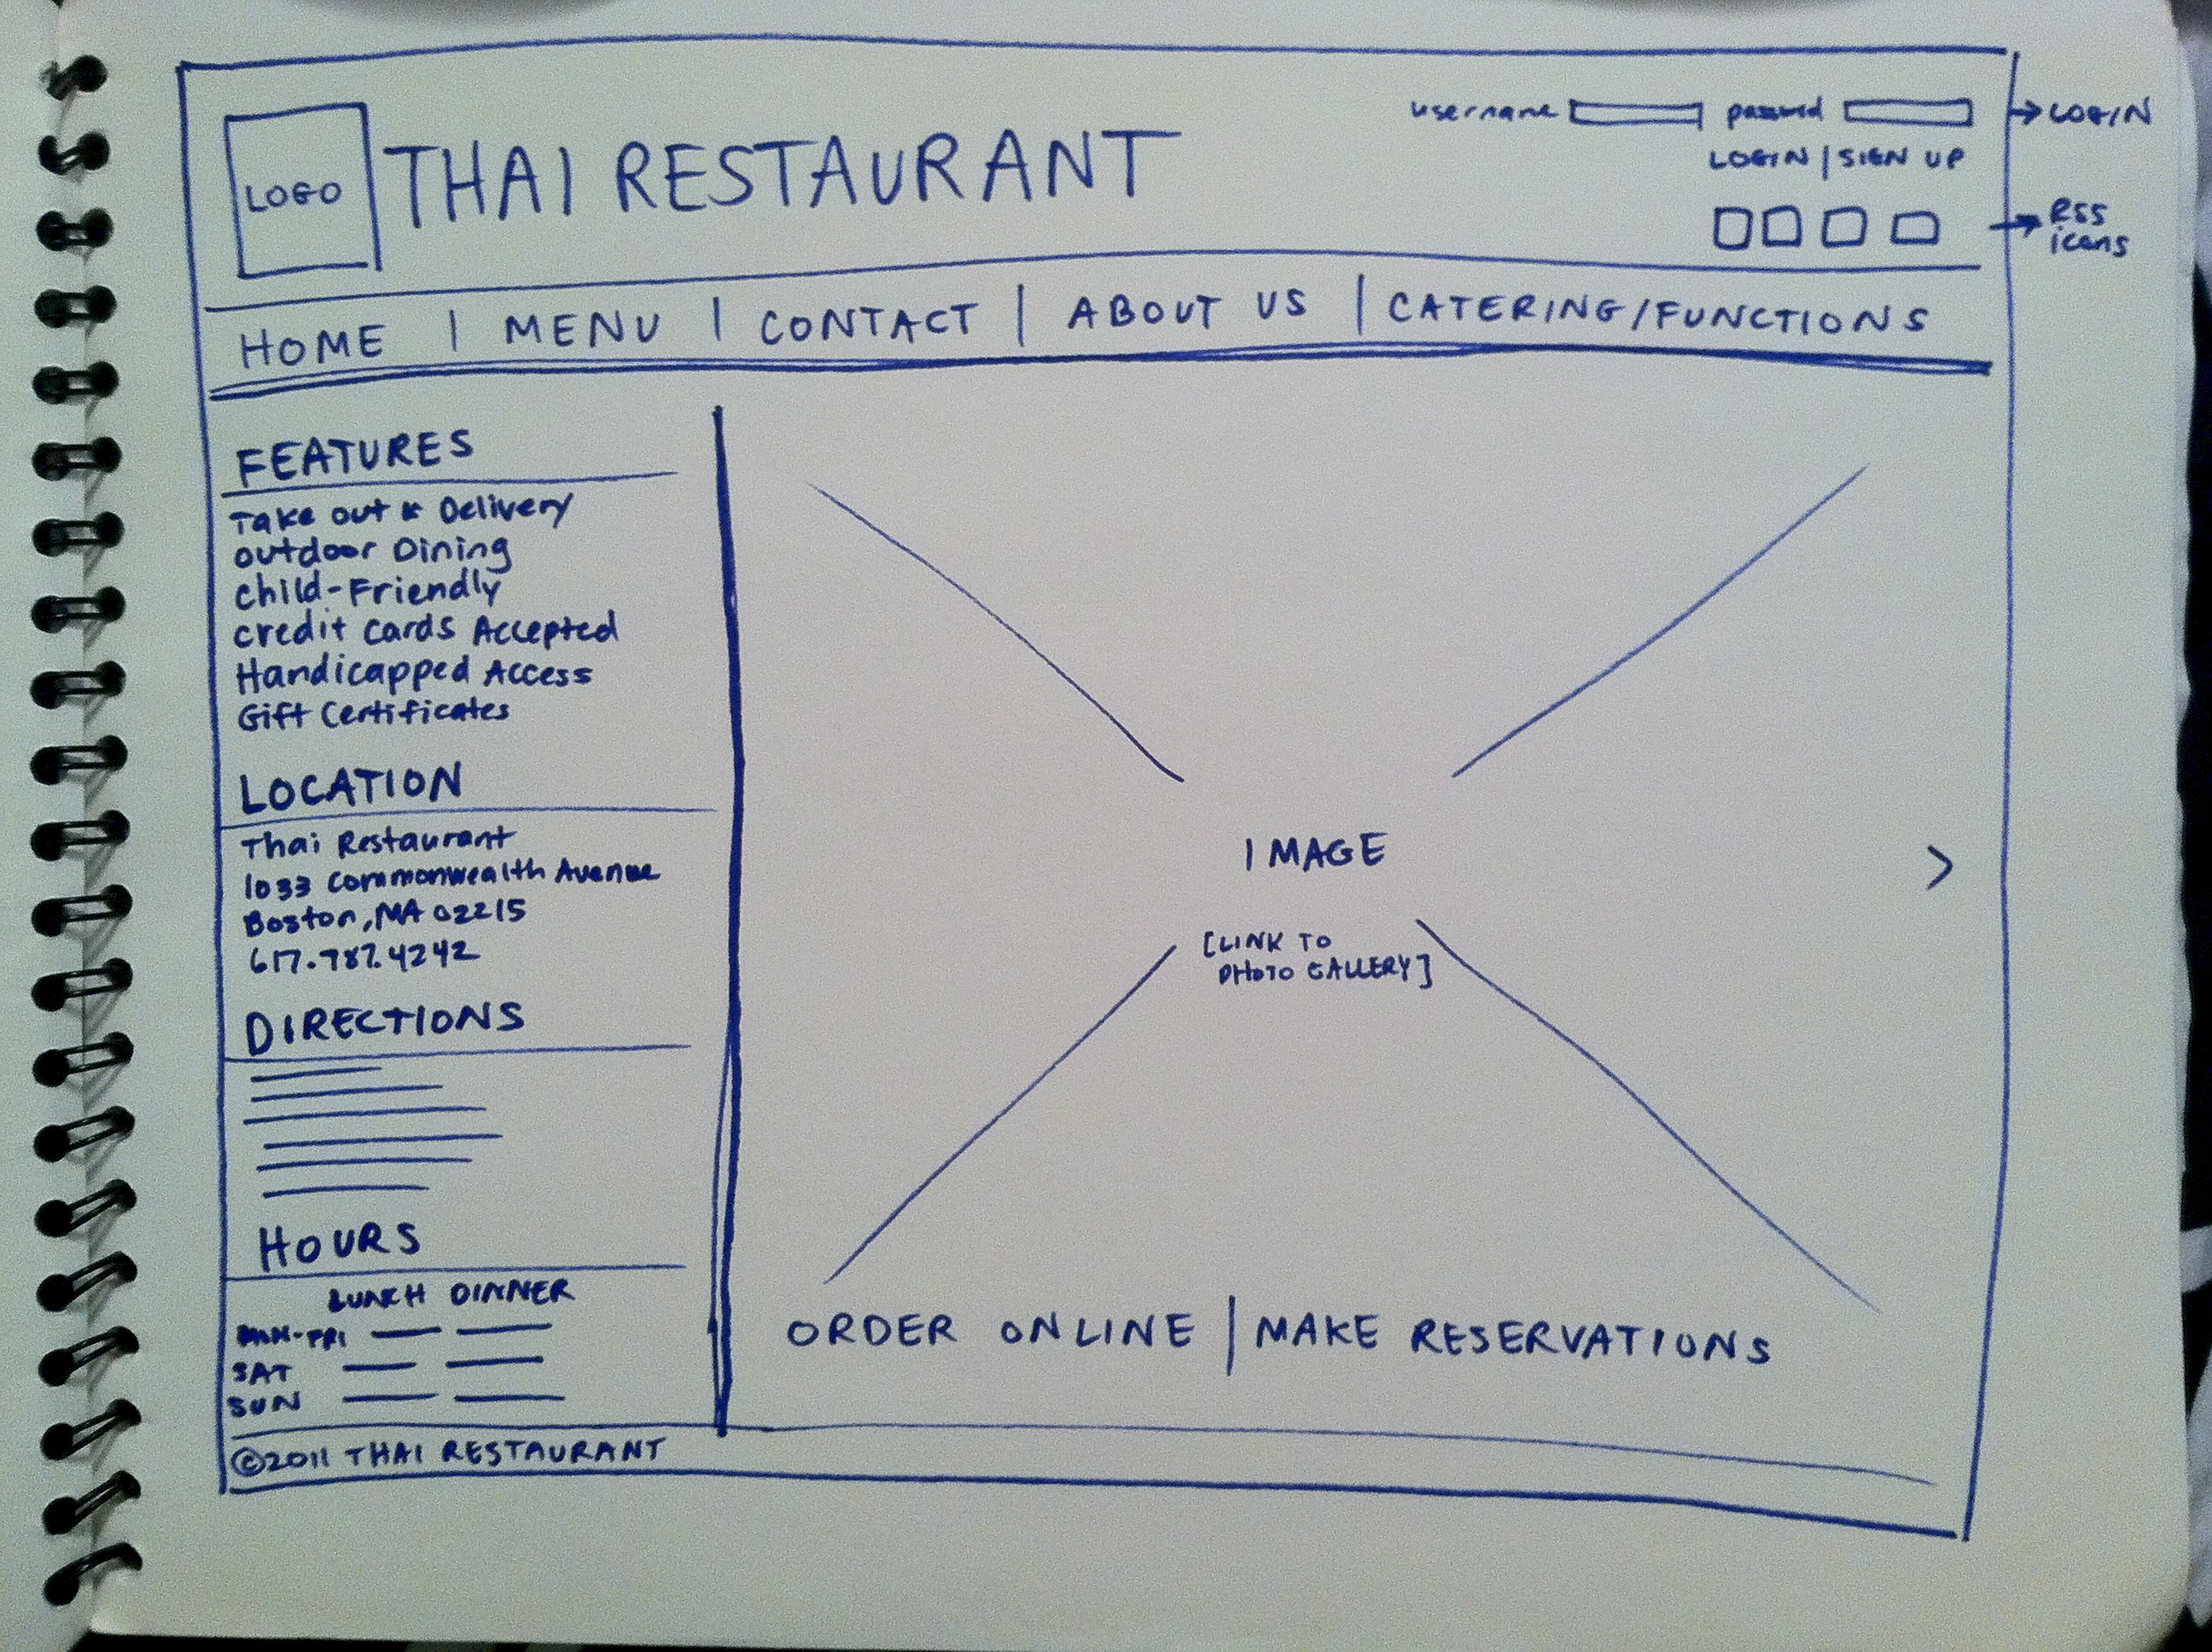 username password → LOGIN
LOGIN | SIGN UP
LOGO
THAI RESTAURANT
→ RSS
icons
HOME | MENU | CONTACT | ABOUT US | CATERING/FUNCTIONS
FEATURES
Take out & Delivery
outdoor Dining
child-Friendly
credit cards Accepted
Handicapped Access
Gift Certificates
LOCATION
Thai Restaurant
1033 Commonwealth Avenue
Boston, MA 02215
617.787.4242
DIRECTIONS
HOURS
LUNCH DINNER
MON-FRI
SAT
SUN
©2011 THAI RESTAURANT
IMAGE
[LINK TO
PHOTO GALLERY]
>
ORDER ONLINE | MAKE RESERVATIONS